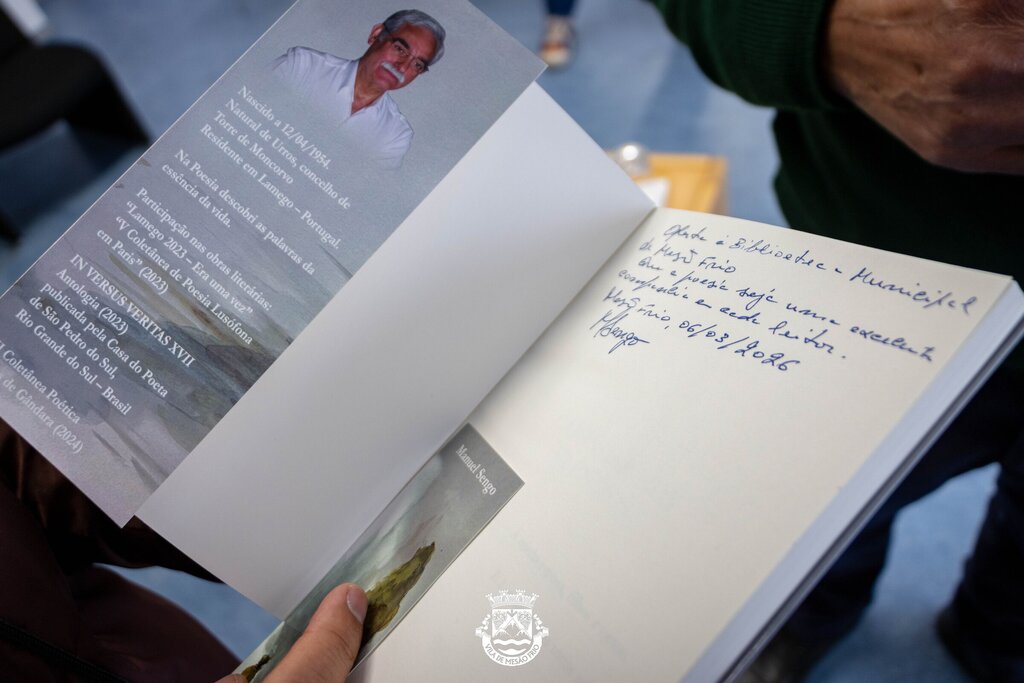 Nascido a 12/04/1954.
Natural de Urros, concelho de
Torre de Moncorvo
Residente em Lamego – Portugal.
Na Poesia descobri as palavras da
essência da vida.
Participação nas obras literárias:
"Lamego 2023 – Era uma vez"
"V Coletânea de Poesia Lusófona
em Paris" (2023)
IN VERSUS VERITAS XVII
Antologia (2023)
publicada pela Casa do Poeta
de São Pedro do Sul,
Rio Grande do Sul – Brasil
Coletânea Poética
de Gândara (2024)
Manuel Sengo
Oferta à Biblioteca Municipal
de Mesão Frio
Que a poesia seja uma excelente
companhia em cada leitor.
Mesão Frio, 06/03/2026
MSengo
VILA DE MESÃO FRIO